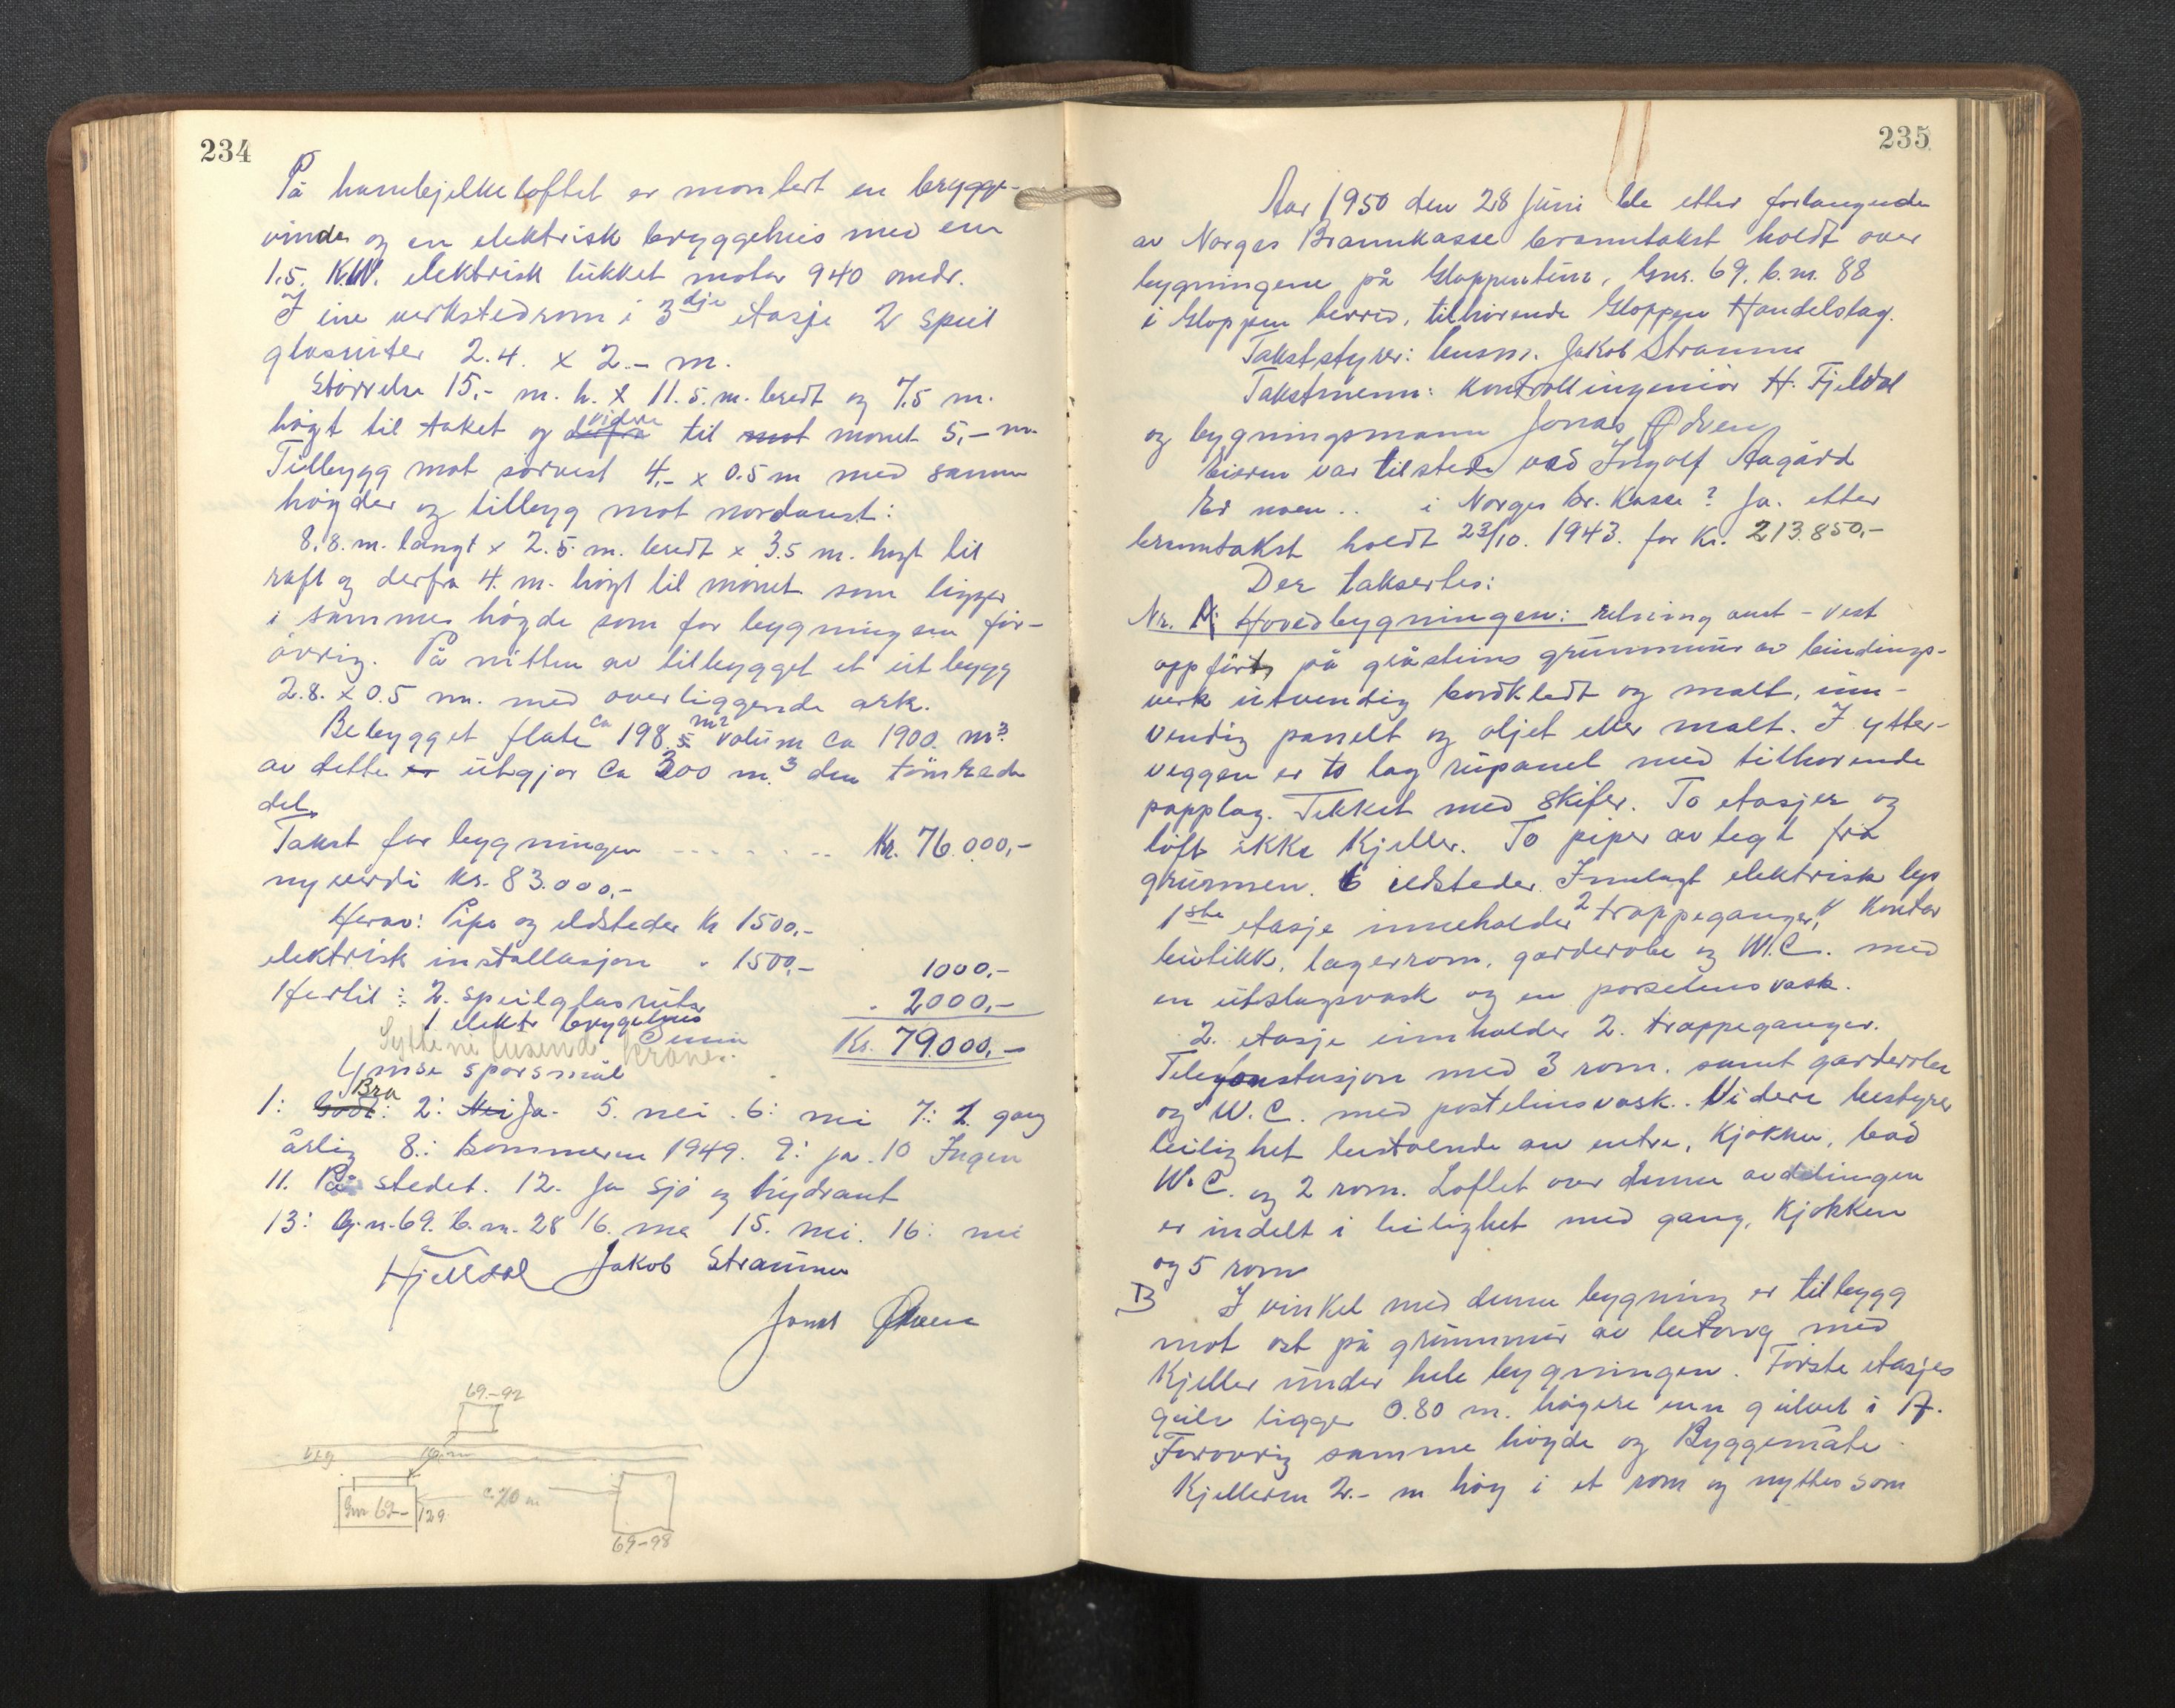 234
På hanebjelkeloftet er montert en brygge-
vinde og en elektrisk bryggeheis med en
1.5. K.W. elektrisk lukket motor 940 omdr.
I eine verkstedrom i 3dje etasje 2 speil
glasruter 2.4. x 2.- m.
Størrelse 15,- m. l. x 11.5. m. bredt og 7,5 m.
høgt til taket og videre til mønet 5,- m.
Tilbygg mot sørvest 4,- x 0.5 m med samme
høgder og tilbygg mot nordaust:
8.8. m. langt x 2.5. m. bredt x 3.5 m. høgt til
raft og derfra 4. m. høgt til mønet som ligger
i samme høgde som for bygningen for-
øvrig. På midten av tilbygget et utbygg
2.8. x 0.5 m. med overliggende ark.
Bebygget flate ca 198. m2 volum ca 1900. m3.
av dette utgjør ca 300 m.3 den tømrede
del.
Takst for bygningen - - - - - - - Kr. 76.000,-
ny verdi kr. 83.000,-
Herav: Pipe og eldsteder kr 1500,-
elektrisk installasjon " 1500,-
Hertil: 2. speilglasruter 1000,-
1 elektr bryggeheis " 2000,-
Summa Kr. 79.000,-
Sytteni tusend kroner.
Ymse spørsmål
1: Bra 2: Ja. 5. nei. 6: nei 7: 1. gang
årlig 8.: Sommeren 1949. 9: ja. 10 Ingen
11. På stedet. 12. Ja sjø og hydrant
13: G.n. 69. b.n. 28 15. nei. 16: nei
Hjelldal Jakob Straume
Jonas Ødven
69-92
veg
Gnr 69-129
c. 20 m
69-98
235
Aar 1950 den 28 juni ble etter forlangende
av Norges Brannkasse branntakst holdt over
bygningene på Gloppentun, Gnr. 69. b.nr. 88
i Gloppen herred, tilhørende Gloppen Handelslag.
Takststyrer: lensm. Jakob Straume
Takstmenn: Kontrollingeniør H. Fjeldal
og bygningsmann Jonas Ødven
Eieren var tilstede ved Ingolf Aagård
Er noen .. i Norges br. Kasse? Ja. etter
branntakst holdt 23/10. 1943. for Kr. 213.850,-
Der taksertes:
Nr. A: Hovedbygningen: retning aust - vest
oppført på gråsteins grunnmur av bindings-
verk utvendig bordkledt og malt, inn-
vendig panelt og oljet eller malt. I ytter-
veggen er to lag rupanel med tilhørende
papplag. Tekket med skifer. To etasjer og
loft ikke Kjeller. To piper av tegl fra
grunnen. 6 ildsteder. Innlagt elektrisk lys
1ste etasje inneholder 2 trappeganger, Kontor
butikk, lagerrom, garderobe og W.C. med
en utslagsvask og en porselensvask.
2. etasje innholder 2. trappeganger.
Telefonstasjon med 3 rom. samt garderobe
og W.C. med postelinsvask. Videre bestyrer
leilighet bestående av entre, Kjøkken, bad
W.C. og 2 rom. Loftet over denne avdelingen
er indelt i leilighet med gang, Kjøkken
og 5 rom
B I vinkel med denne bygning er tilbygg
mot ost på grunnmur av betong med
Kjeller under hele bygningen. Første etasjes
gulv ligger 0.80 m. høgere enn gulvet i A.
Forøvrig samme høyde og Byggemåte
Kjelleren 2.- m høg i et rom og nyttes som